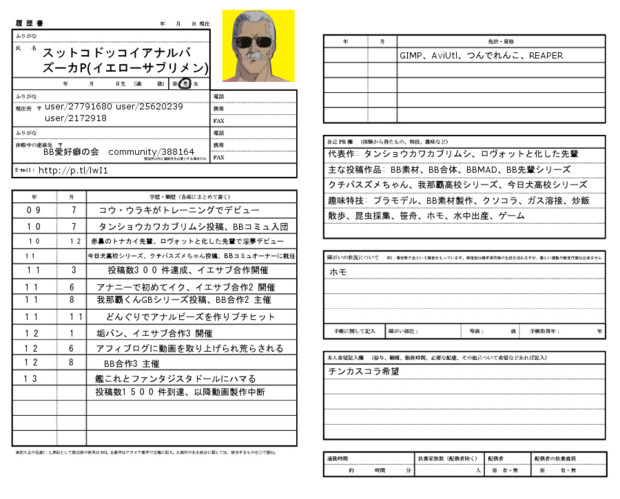 履歴書
年　月　日 現在
ふりがな
氏　名
スットコドッコイアナルバ
ズーカP(イエローサブリメン)
年　月　日生（満　歳）
男　女
ふりがな
現住所　〒 user/27791680 user/25620239
user/2172918
電話
携帯
FAX
ふりがな
〒
BB愛好癖の会　community/388164
電話
携帯
FAX
E-mail: http://p.tl/lwI1
年　月　学歴・職歴（各別にまとめて書く）
０９　７　コウ・ウラキがトレーニングでデビュー
１０　７　タンショウカワカブリムシ投稿、BBコミュ入団
１０　１２　赤鼻のトナカイ先輩、ロヴォットと化した先輩で淫夢デビュー
１１　今日犬高校シリーズ、クチバスズメちゃん投稿、BBコミュオーナーに就任
１１　３　投稿数３００件達成、イエサブ合作開催
１１　６　アナニーで初めてイク、イエサブ合作2 開催
１１　８　我那覇くんGBシリーズ投稿、BB合作2 主催
１１　１１　どんぐりでアナルビーズを作りプチヒット
１２　１　垢バン、イエサブ合作3 開催
１２　６　アフィブログに動画を取り上げられ荒らされる
１２　８　BB合作3 主催
１３　艦これとファンタジスタドールにハマる
投稿数１５００件到達、以降動画製作中断
年　月　免許・資格
GIMP、AviUtl、つんでれんこ、REAPER
自己PR欄
代表作: タンショウカワカブリムシ、ロヴォットと化した先輩
主な投稿作品: BB素材、BB合体、BBMAD、BB先輩シリーズ
クチバスズメちゃん、我那覇高校シリーズ、今日犬高校シリーズ
趣味特技: プラモデル、BB素材製作、クソコラ、ガス溶接、炒飯
散歩、昆虫採集、笹舟、ホモ、水中出産、ゲーム
障がいの状況について
ホモ
手帳に関して記入　障がい部位：　等級：　級　手帳取得年：　年
本人希望記入欄
チンカスコラ希望
通勤時間　扶養家族数（配偶者除く）　配偶者　配偶者の扶養義務
約　時間　分　人　※ 有・無　※ 有・無